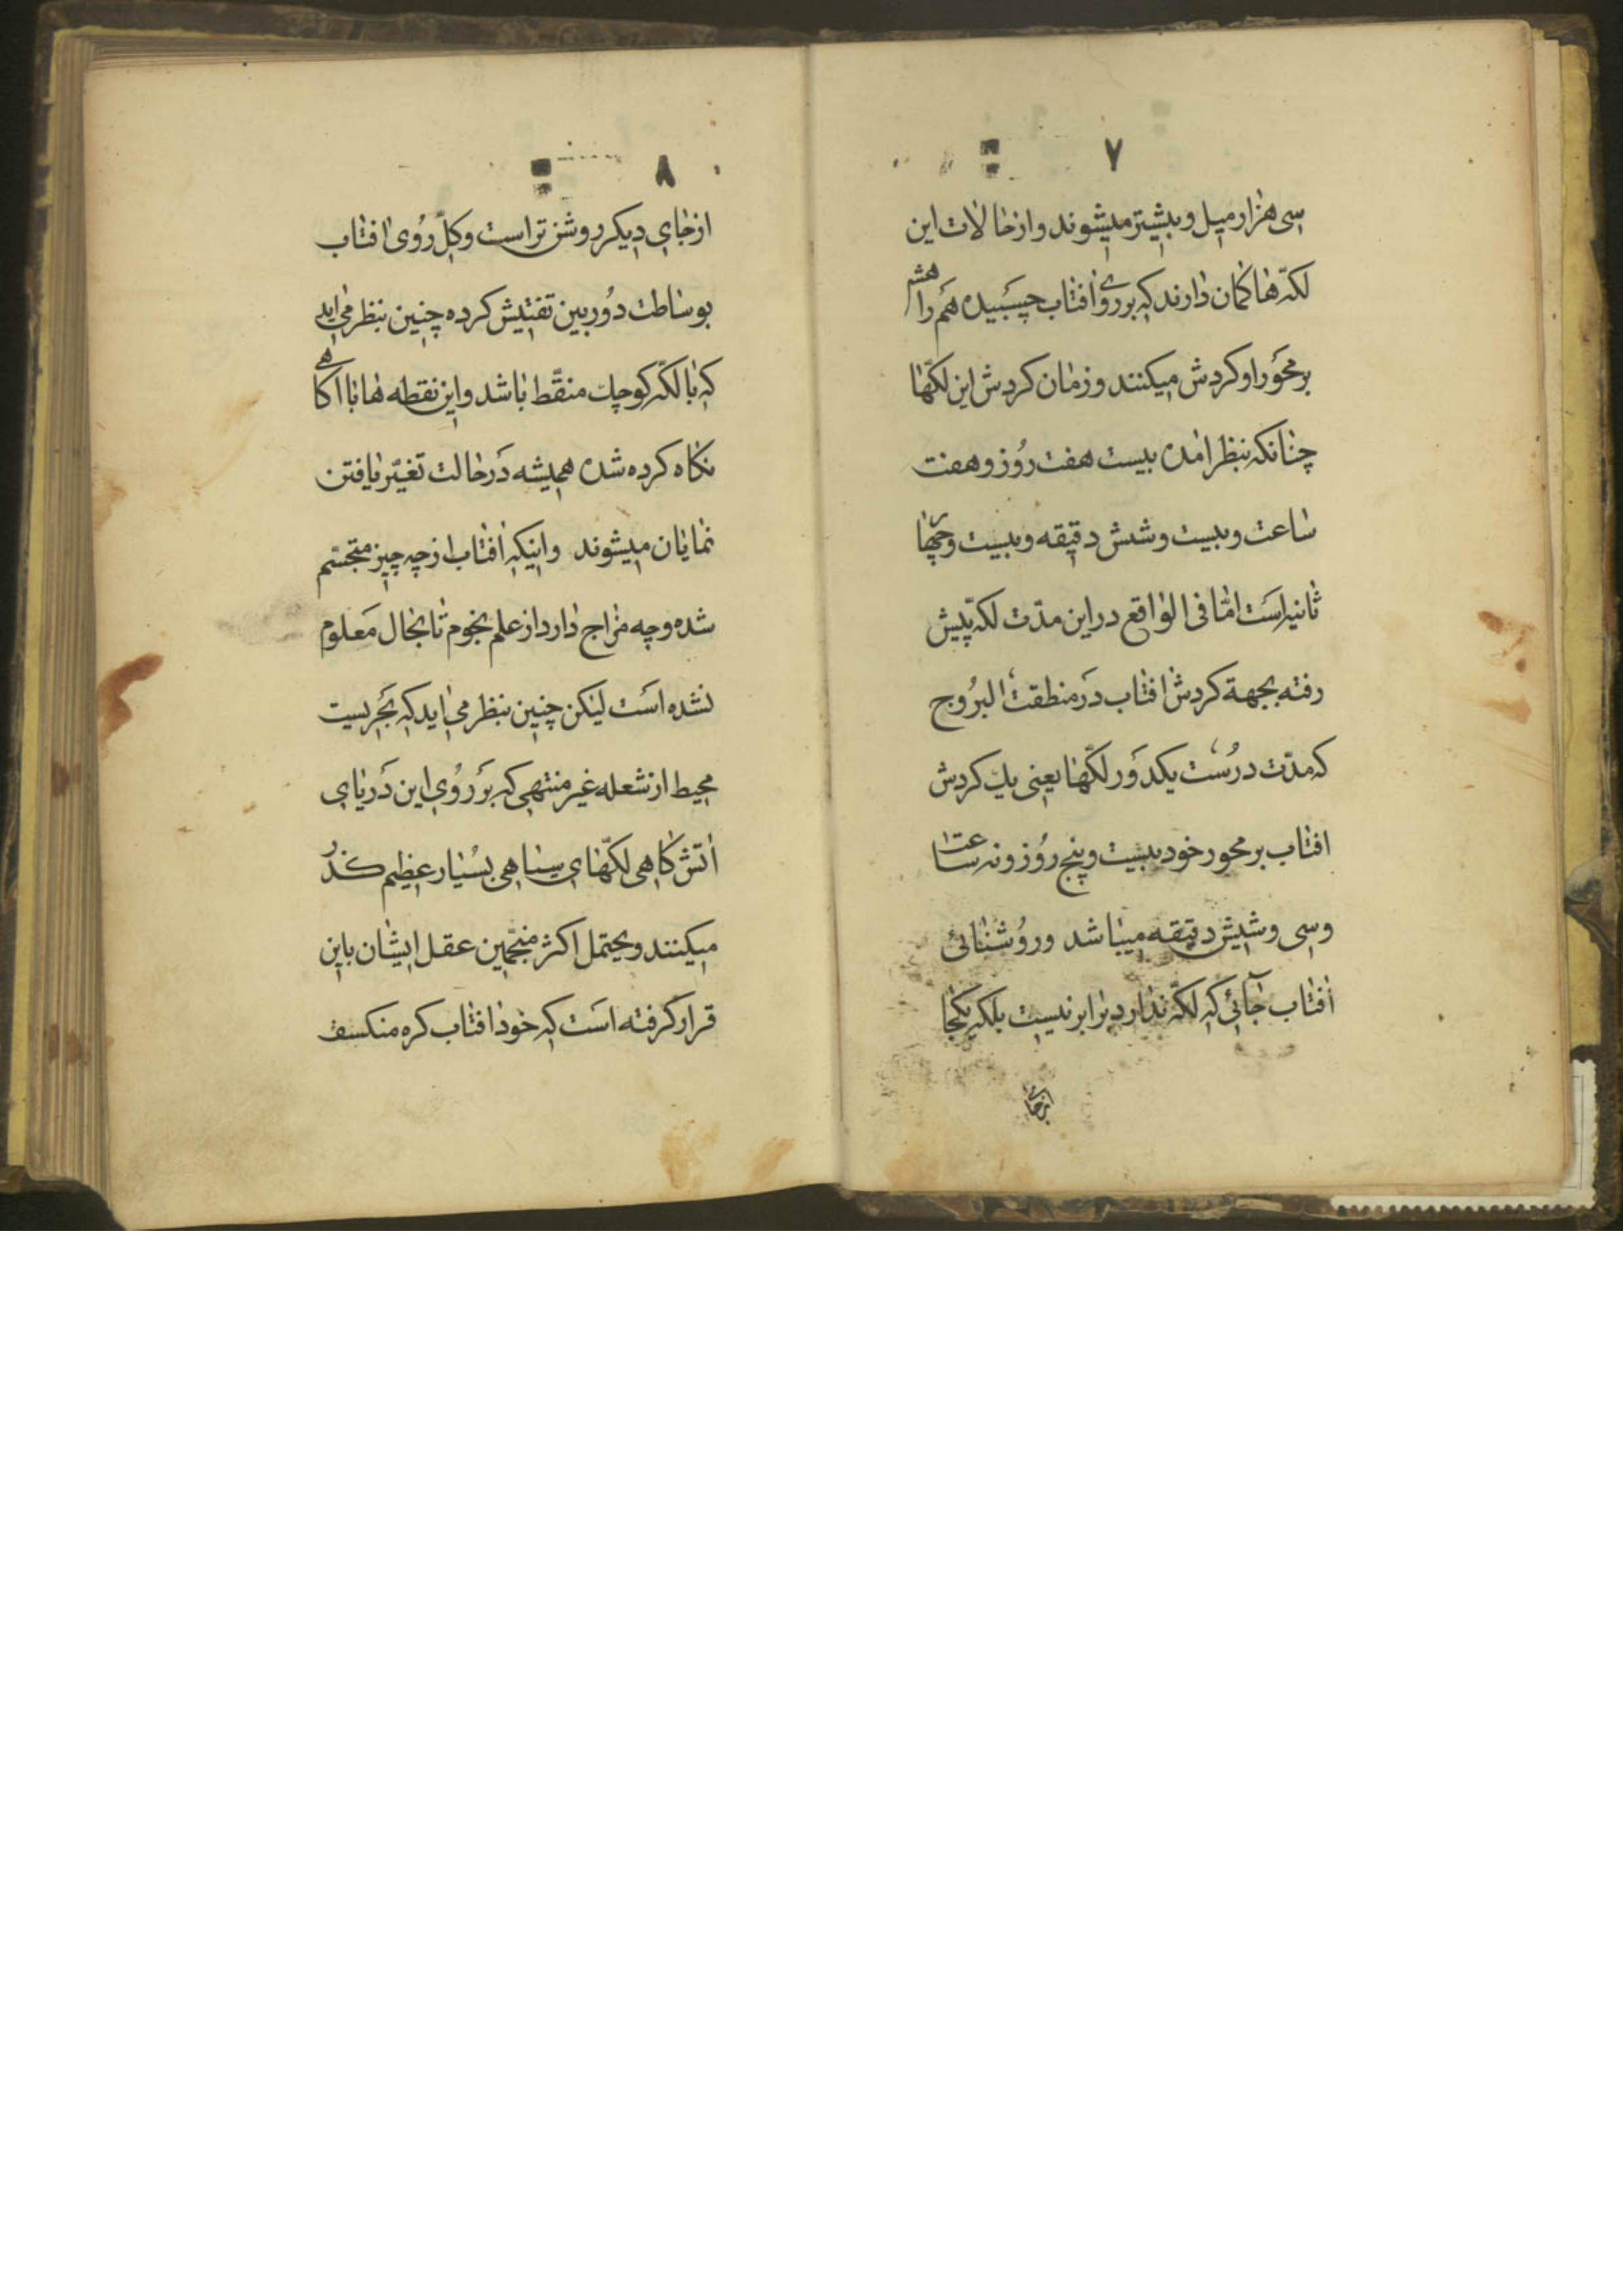 ٧
سی هزار میل و بیشتر میشوند و از حالات این
لکّه ها کمان دارند که بر روی افتاب چسبیده همراه هشه
بر محور او کردش میکنند و زمان کردش این لکّها
چنانکه بنظر امده بیست هفت روز و هفت
ساعت و بیست و شش دقیقه و بیست و چهار
ثانیه است امّا فی الواقع در این مدّت لکه پیش
رفته بجهة کردش افتاب در منطقت البروج
که مدّت درست یکدور لکّها یعنی یك کردش
افتاب بر محور خود بیست و پنج روز و نه ساعت
و سی و شیش دقیقه میباشد و روشنائی
افتاب جائی که لکّه ندارد برابر نیست بلکه یکجا
از جای
٨
از جای دیکر روشن تر است و کلّ روی افتاب
بوساطت دوربین تفتیش کرده چنین بنظر می اید
که با لکّه کوچك منقّط باشد و این نقطه ها با اکاهی
نکاه کرده شده همیشه در حالت تغیّر یافتن
نمایان میشوند و اینکه افتاب از چه چیز متجسّم
شده و چه مزاج دارد از علم نجوم تا بحال معلوم
نشده است لیکن چنین بنظر می اید که بحریست
محیط از شعله غیر منتهی که بر روی این دریای
اتش کاهی لکّهای سیاهی بسیار عظیم کذر
میکنند و یحتمل اکثر منجّمین عقل ایشان باین
قرار کرفته است که خود افتاب کره منکسف